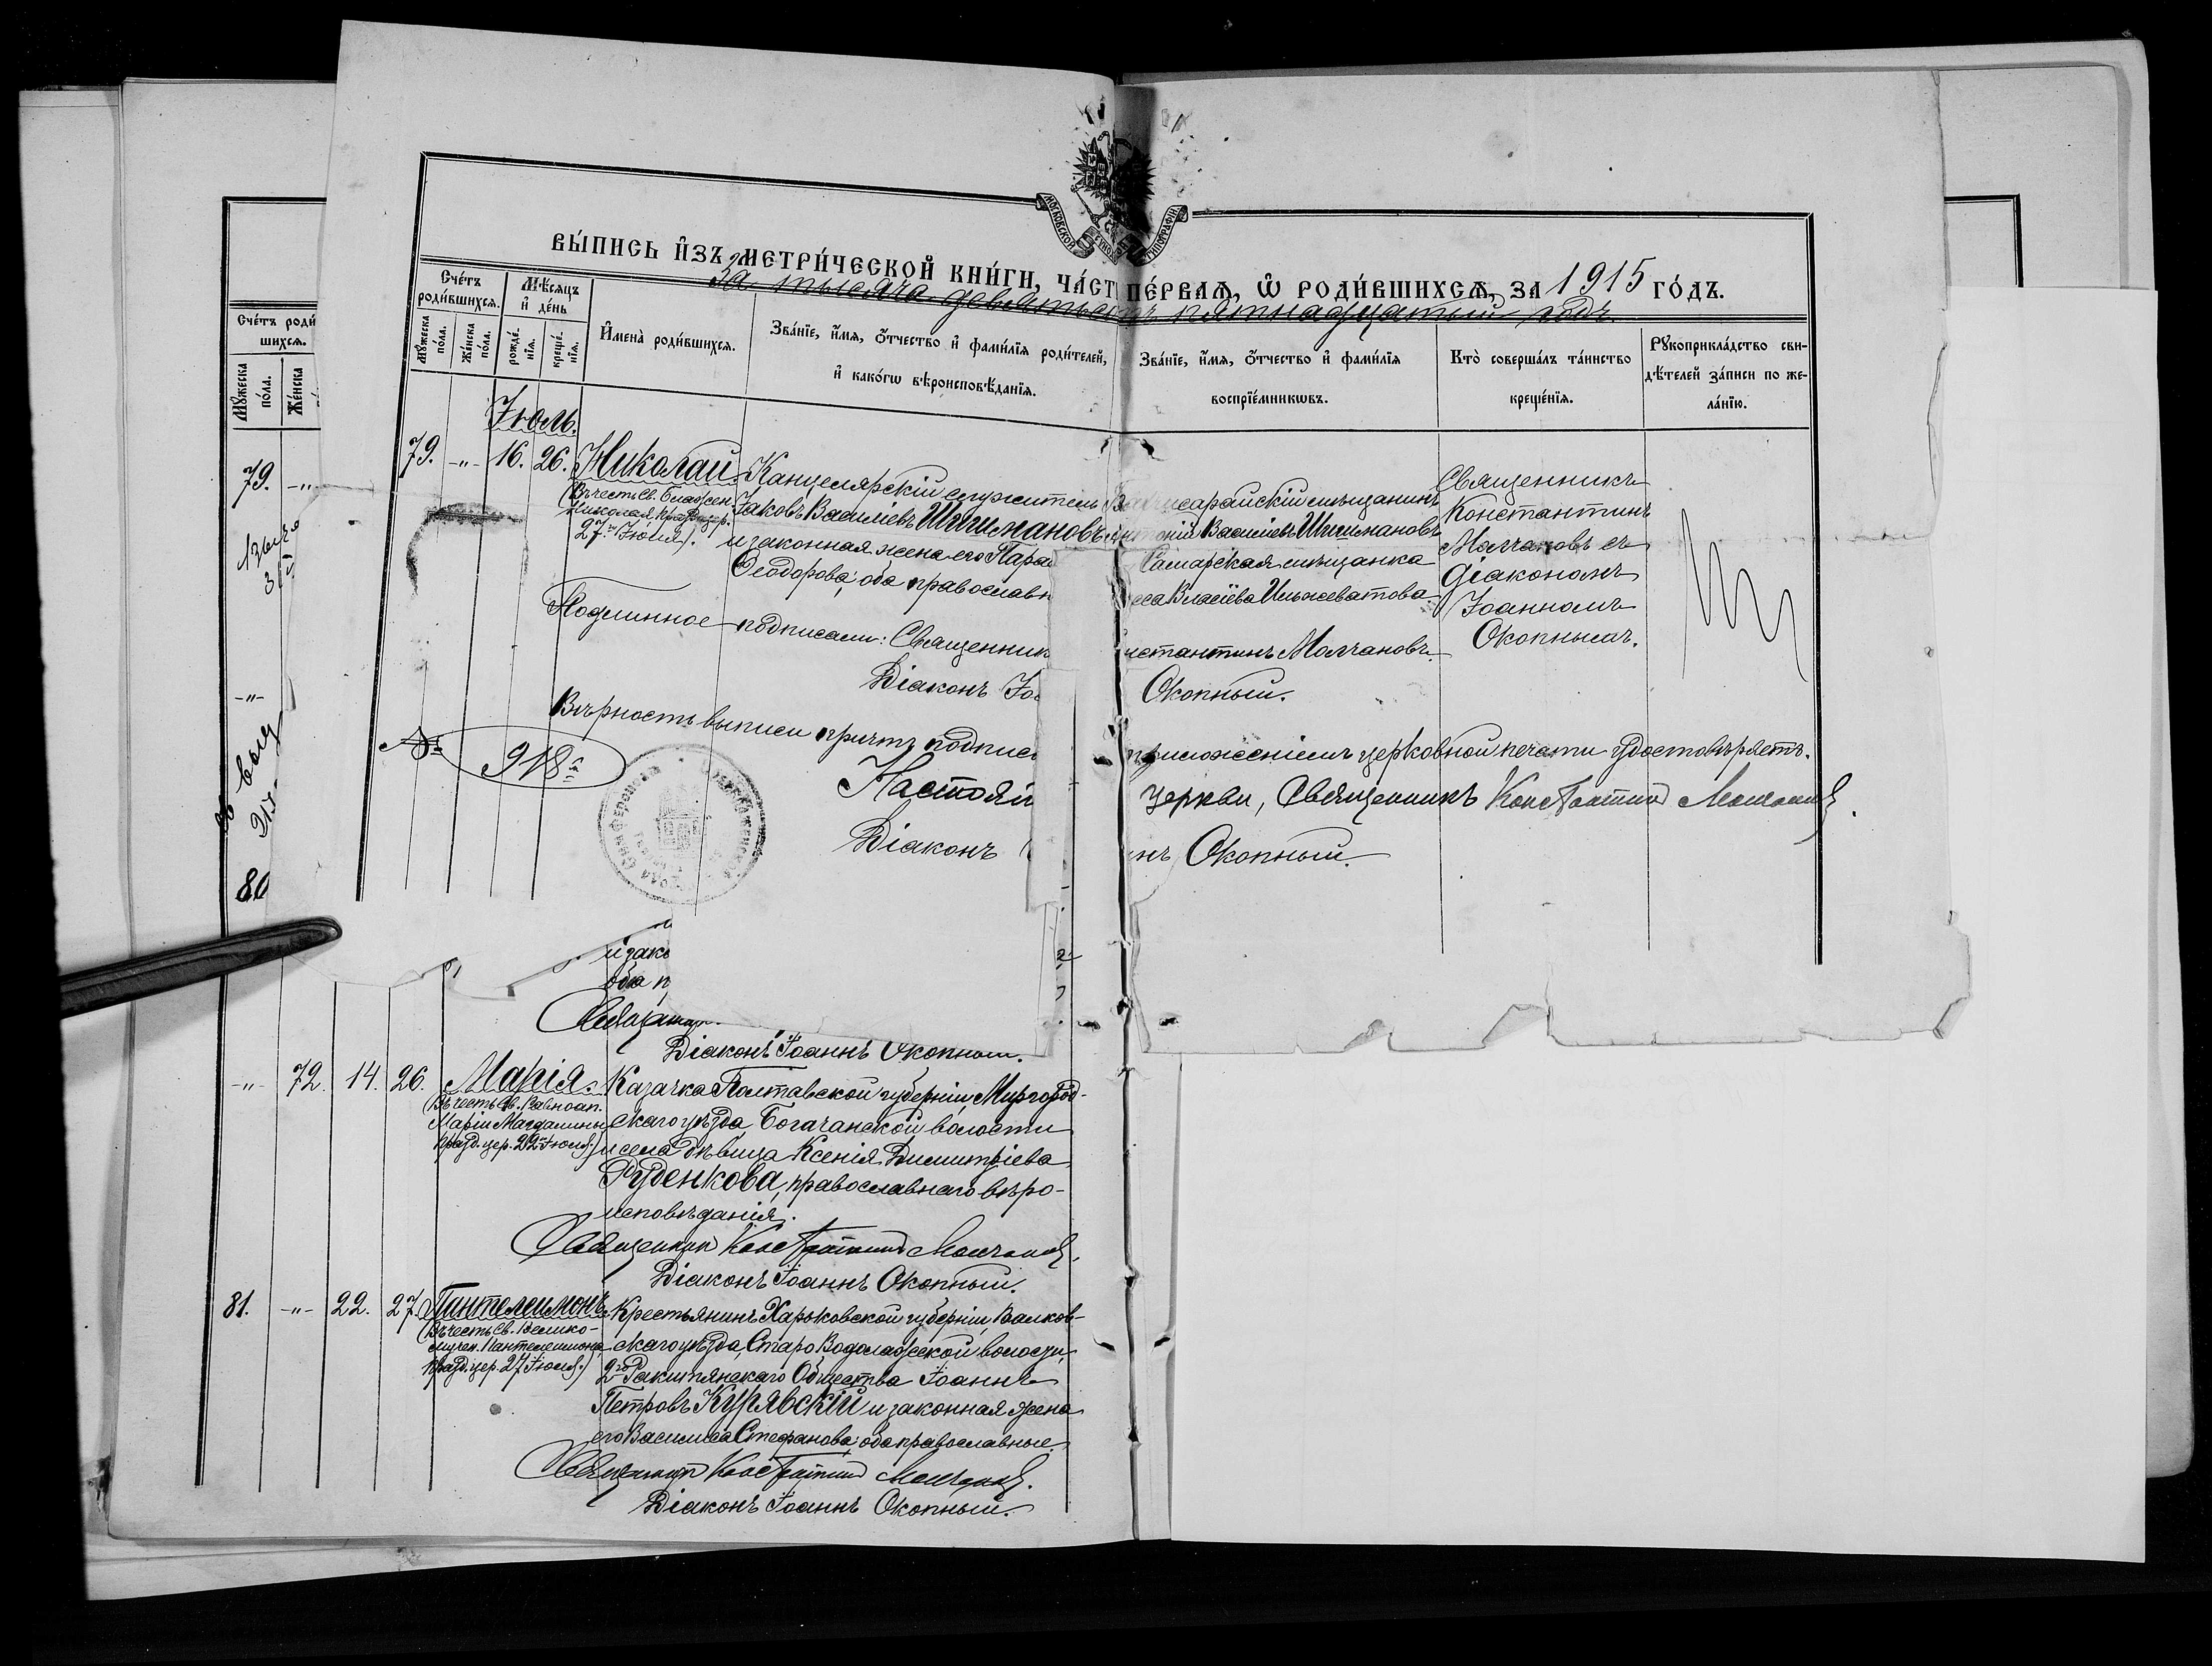 МОСКОВСКОЙ СѴНОД ТИПОГРАФІИ
ВЫ́ПИСЬ И҆ЗЪ МЕТРИ́ЧЕСКОЙ КНИ́ГИ, ЧА́СТ ПЕ́РВАѦ, Ѡ҆ РОДИ́ВШИХСѦ, ЗА 1915 ГО́ДЪ.
За тысяча девятьсотъ пятнадцатый годъ.
Сче́тъ роди́вшихся.
Мѣ́сяцъ и҆ де́нь
Мꙋ́жеска по́ла.
Же́нска по́ла.
рожде́нїя.
креще́нїя.
И҆мена̀ роди́вшихся.
Зва́нїе, и҆́мя, ѻ҆́тчество и҆ фами́лїя роди́телей,
и҆ како́гѡ вѣроисповѣ́данїя.
Зва́нїе, и҆́мя, ѻ҆́тчество и҆ фами́лїя
воспрїе́мникѡвъ.
Кто̀ соверша́лъ та́инство
креще́нїя.
Рꙋкоприкла́дство сви-
дѣ́телей за́писи по же-
ла́нїю.
Іюль.
79. -„- 16. 26. Николай
(Въ честь Св. Блажен.
Николая, празд. цер.
27го Іюля).
Канцелярскій служитель
Іаковъ Василіевъ Шишмановъ
и законная жена его Парас
Ѳеодорова, оба православн
хчисарайскій мѣщанинъ
тоній Василіевъ Шишмановъ
Самарская мѣщанка
сса Власіева Ильжеватова.
Священникъ
Константинъ
Молчановъ съ
діакономъ
Іоанномъ
Окопнымъ.
Подлинное подписали: Священник
нстантинъ Молчановъ.
Діаконъ Іоа
Окопный.
Вѣрность выписи причтъ подпис
приложеніемъ церковной печати удостовѣряетъ.
№ 918й
Настоят
церкви, Священникъ Константинъ Молчановъ.
Діаконъ
нъ Окопный.
Сче́тъ роди
шихся.
Мꙋ́жеска по́ла.
Же́нска
79. -„-
-„-
80
и зако
оба п
Діаконъ Іоаннъ Окопный.
-„- 72. 14. 26. Марія.
(Въ честь Св. Равноап.
Маріи Магдалины
празд. цер. 22 Іюля.)
Казачка Полтавской губерніи, Миргород-
скаго уѣзда, Богачанской волости
и села дѣвица Ксенія Димитріева
Руденкова, православнаго вѣро-
исповѣданія.
Священникъ Константинъ Молчановъ.
Діаконъ Іоаннъ Окопный.
81. -„- 22. 27. Пантелеимонъ
(Въ честь Св. Велико-
мучен. Пантелеимона,
празд. цер. 27 Іюля.)
Крестьянинъ Харьковской губерніи, Валков-
скаго уѣзда, Старо Водолажской волости,
2го Ракитянскаго Общества Іоаннъ
Петровъ Курявскій и законная жена
его Василиса Стефанова, оба православные.
Священникъ Константинъ Молчановъ.
Діаконъ Іоаннъ Окопный.